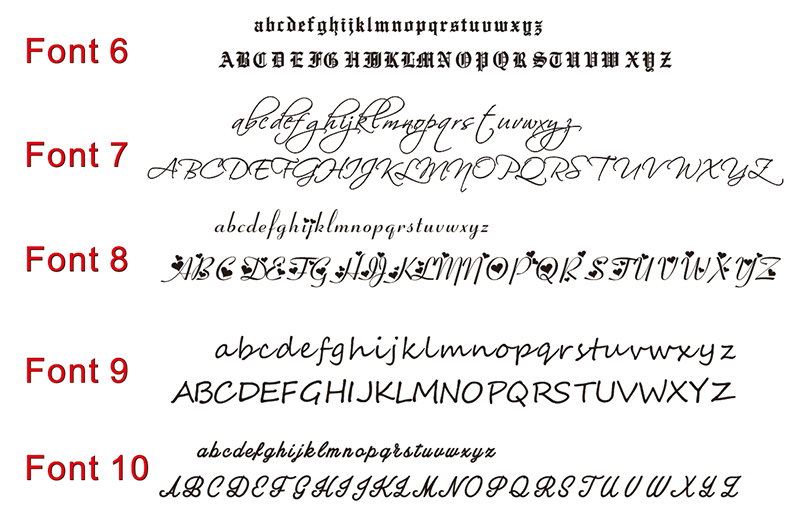 abcdefghijklmnopqrstuvwxyz
Font 6
ABCDEFGHIJKLMNOPQRSTUVWXYZ
abcdefghijklmnopqrstuvwxyz
Font 7
ABCDEFGHIJKLMNOPQRSTUVWXYZ
abcdefghijklmnopqrstuvwxyz
Font 8
ABCDEFGHIJKLMNOPQRSTUVWXYZ
abcdefghijklmnopqrstuvwxyz
Font 9
ABCDEFGHIJKLMNOPQRSTUVWXYZ
abcdefghijklmnopqrstuvwxyz
Font 10
ABCDEFGHIJKLMNOPQRSTUVWXYZ